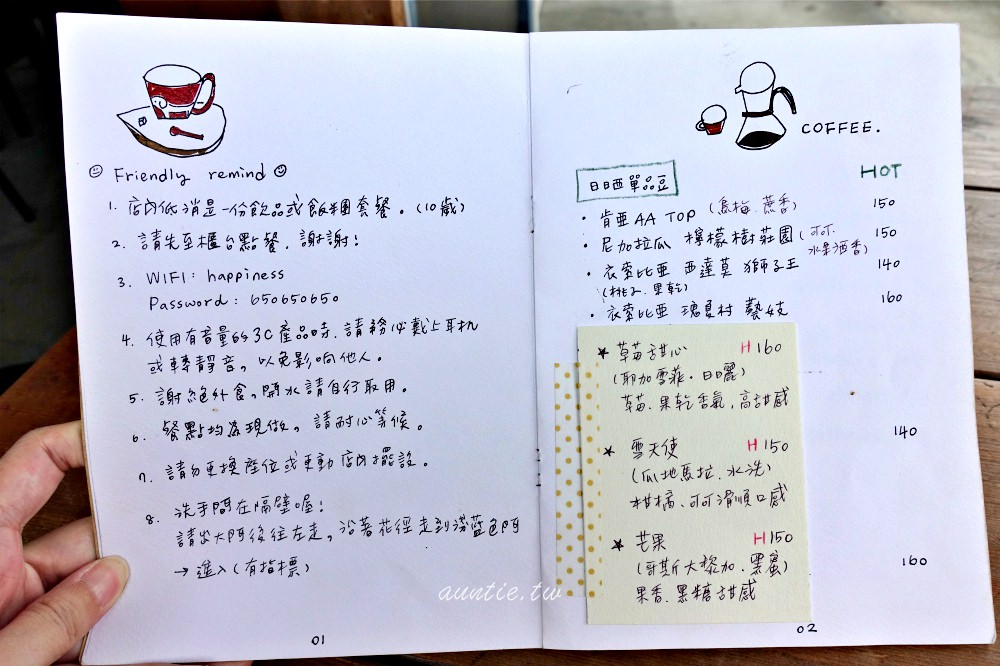 Friendly remind
1. 店內低消是一份飲品或飯糰套餐。(10歲)
2. 請先至櫃台點餐.謝謝!
3. WIFI: happiness
Password: 650650650
4. 使用有音量的3C產品時.請務必戴上耳機
或轉靜音。以免影响他人。
5. 謝絕外食。開水請自行取用。
6. 餐點均為現做。請耐心等候。
7. 請勿更換座位或更動店內擺設。
8. 洗手間在隔壁喔!
請出大門後往左走。沿著花徑走到深藍色門
→ 進入(有指標)
01
COFFEE.
HOT
日日西單品豆
• 肯亞 AA TOP (烏梅.蔗香) 150
• 尼加拉瓜 檸檬樹莊園(可可. 150
水果酒香)
• 衣索比亞 西達莫 獅子王 140
(桃子.果乾)
• 衣索比亞 瑰夏村 藝妓 160
★ 草莓甜心 H 160
(耶加雪菲・日曬)
草莓.果乾香氣.高甜感
★ 雪天使 H 150
(瓜地馬拉.水洗)
柑橘、可可滑順口感
★ 芒果 H 150
(哥斯大黎加.黑蜜)
果香.黑糖甜感
140
160
02
auntie.tw